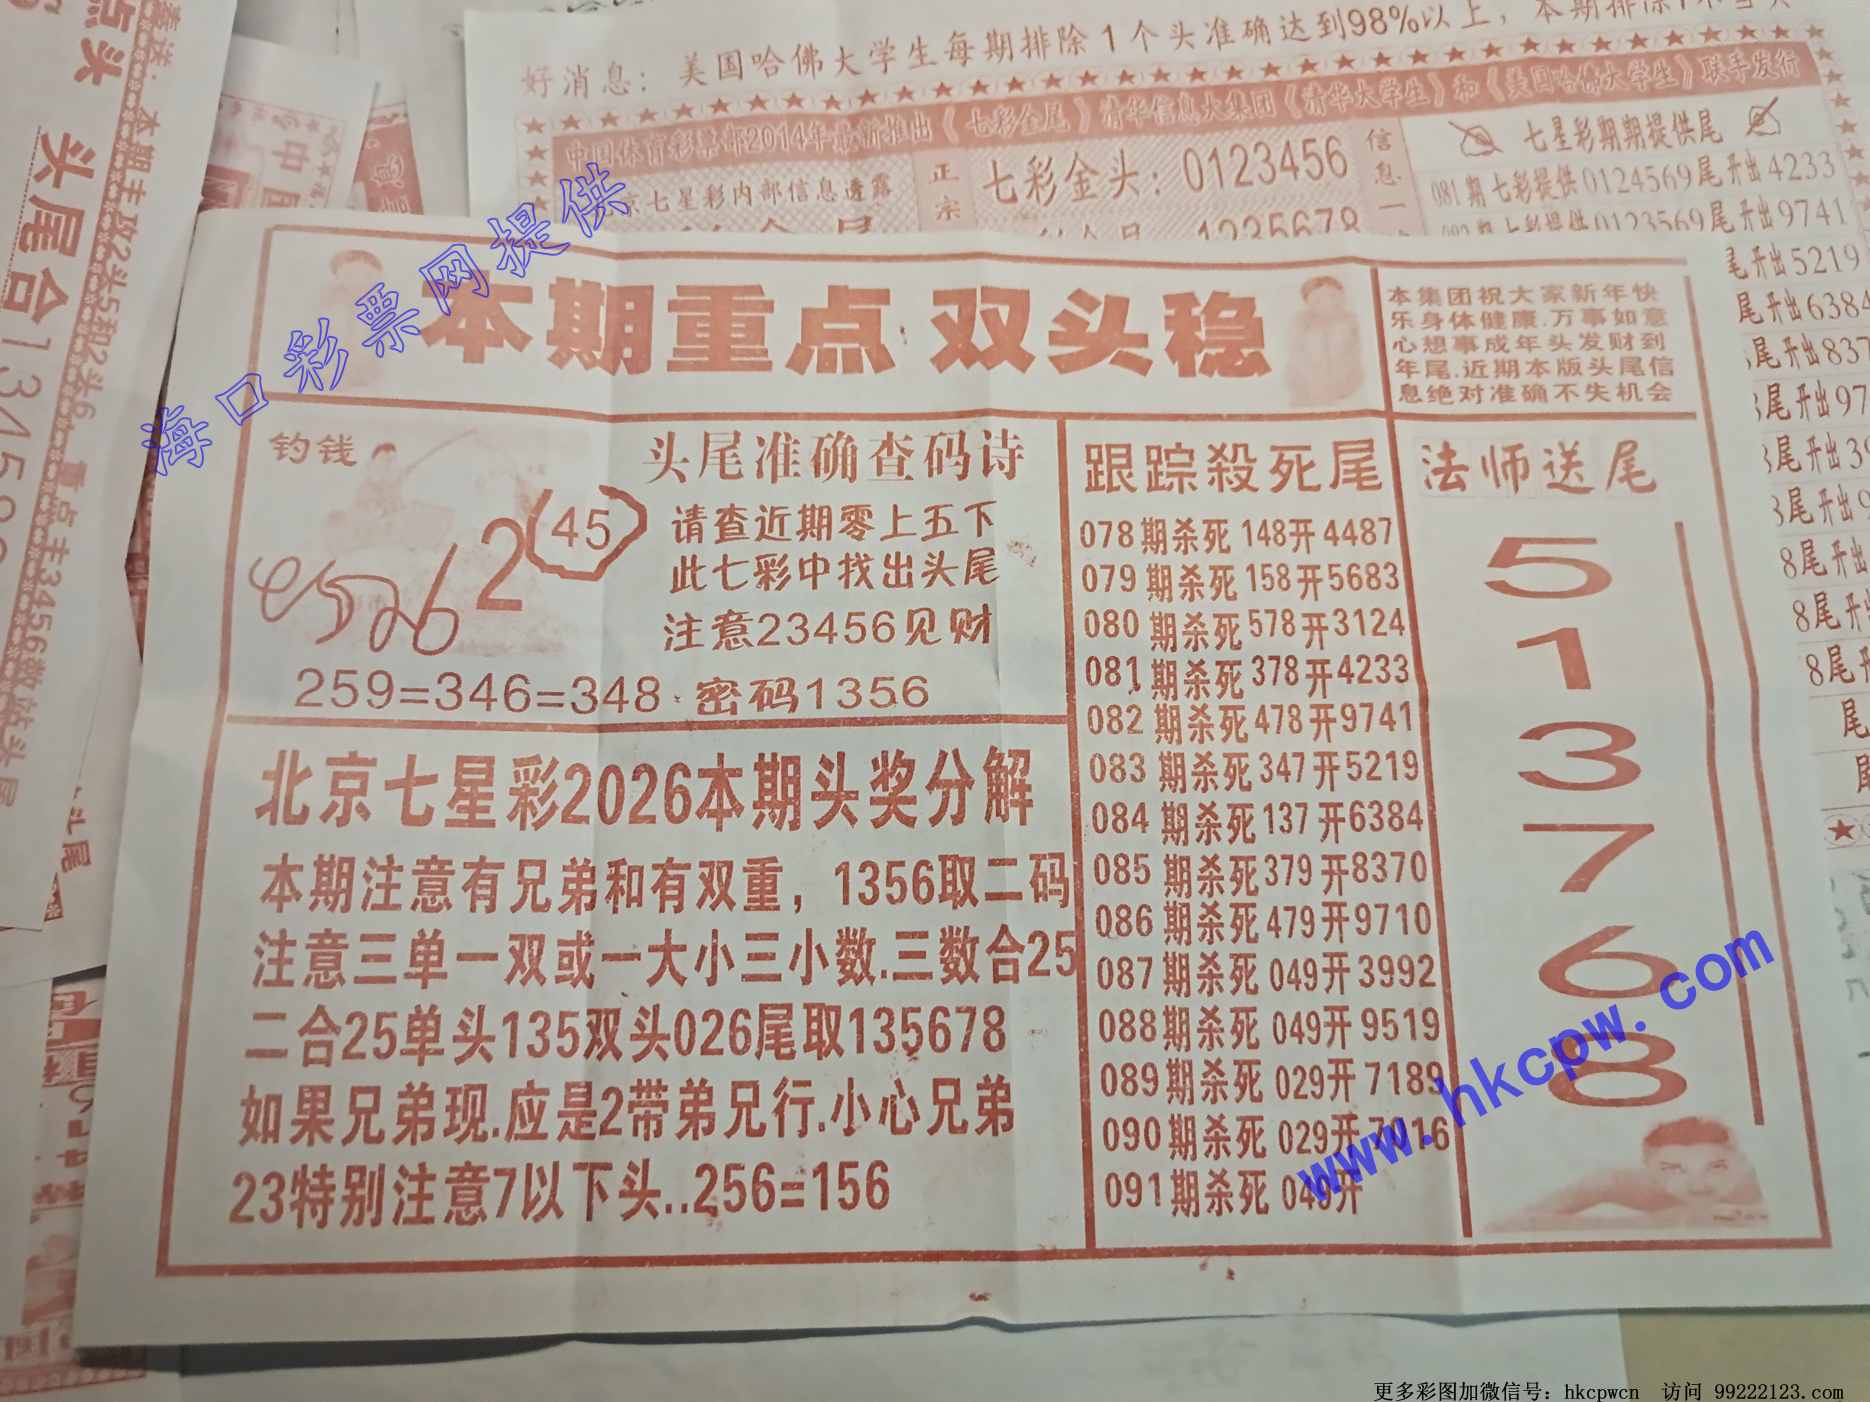 好消息：美国哈佛大学生每期排除1个头准确达到98%以上，本期排除1
中国体育彩票部2014年最新推出《七彩金尾》清华信息大集团《清华大学生》和《美国哈佛大学生》联手发行
京七星彩内部信息透露
正宗
七彩金头：0123456
1235678
信息一
七星彩期期提供尾
081期七彩提供0124569尾开出4233
0123569尾开出9741
尾开出5219
尾开出6384
尾开出837
尾开出97
尾开出39
8尾开出
8尾开出
点头
本期主攻2头5和2头6
头尾合
海口彩票网提供
本期重点 双头稳
本集团祝大家新年快
乐身体健康.万事如意
心想事成年头发财到
年尾.近期本版头尾信
息绝对准确不失机会
钓钱
2
45
头尾准确查码诗
请查近期零上五下
此七彩中找出头尾
注意23456见财
259=346=348·密码1356
北京七星彩2026本期头奖分解
本期注意有兄弟和有双重，1356取二码
注意三单一双或一大小三小数.三数合25
二合25单头135双头026尾取135678
如果兄弟现.应是2带弟兄行.小心兄弟
23特别注意7以下头..256=156
跟踪殺死尾
078期杀死148开4487
079期杀死158开5683
080期杀死578开3124
081期杀死378开4233
082期杀死478开9741
083期杀死347开5219
084期杀死137开6384
085期杀死379开8370
086期杀死479开9710
087期杀死049开3992
088期杀死049开9519
089期杀死029开7189
090期杀死029开7016
091期杀死049开
法师送尾
5
1
3
7
6
8
www.hkcpw.com
更多彩图加微信号：hkcpwcn 访问 99222123.com